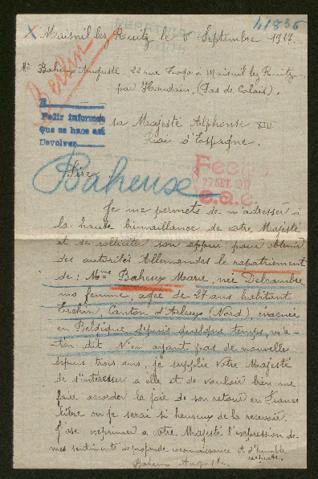 x Maisnil les Ruitz le 8 Septembre 1917.
41836
Mr Baheux Auguste, 22 rue à Maisnil les Ruitz
par Houdain, (Pas de Calais).
Berlin
Pedir informes
que se hace así
Devolver
sa Majesté Alphonse XIII
d'Espagne.
Sire
Baheux
Fecha
27 SET. 1917
Je me permets de m'adresser à
la haute bienveillance de votre Majesté
et de solliciter son appui pour obtenir
des autorités Allemandes le rapatriement
de: Mme Baheux Marie, née Delcambre
ma femme, agée de 27 ans habitant
Canton d'Arleux (Nord) évacuée
en Belgique depuis quelque temps,
dit N'en ayant pas de nouvelles
depuis trois ans, je supplie votre Majesté
de s'intéresser a elle et de vouloir bien me
faire accorder la joie de son retour en France
libre ou je serai si heureux de la recevoir.
J'ose exprimer a votre Majesté l'expression de
mes sentiments de profonde reconnaissance et d'humble
respects.
Baheux Auguste